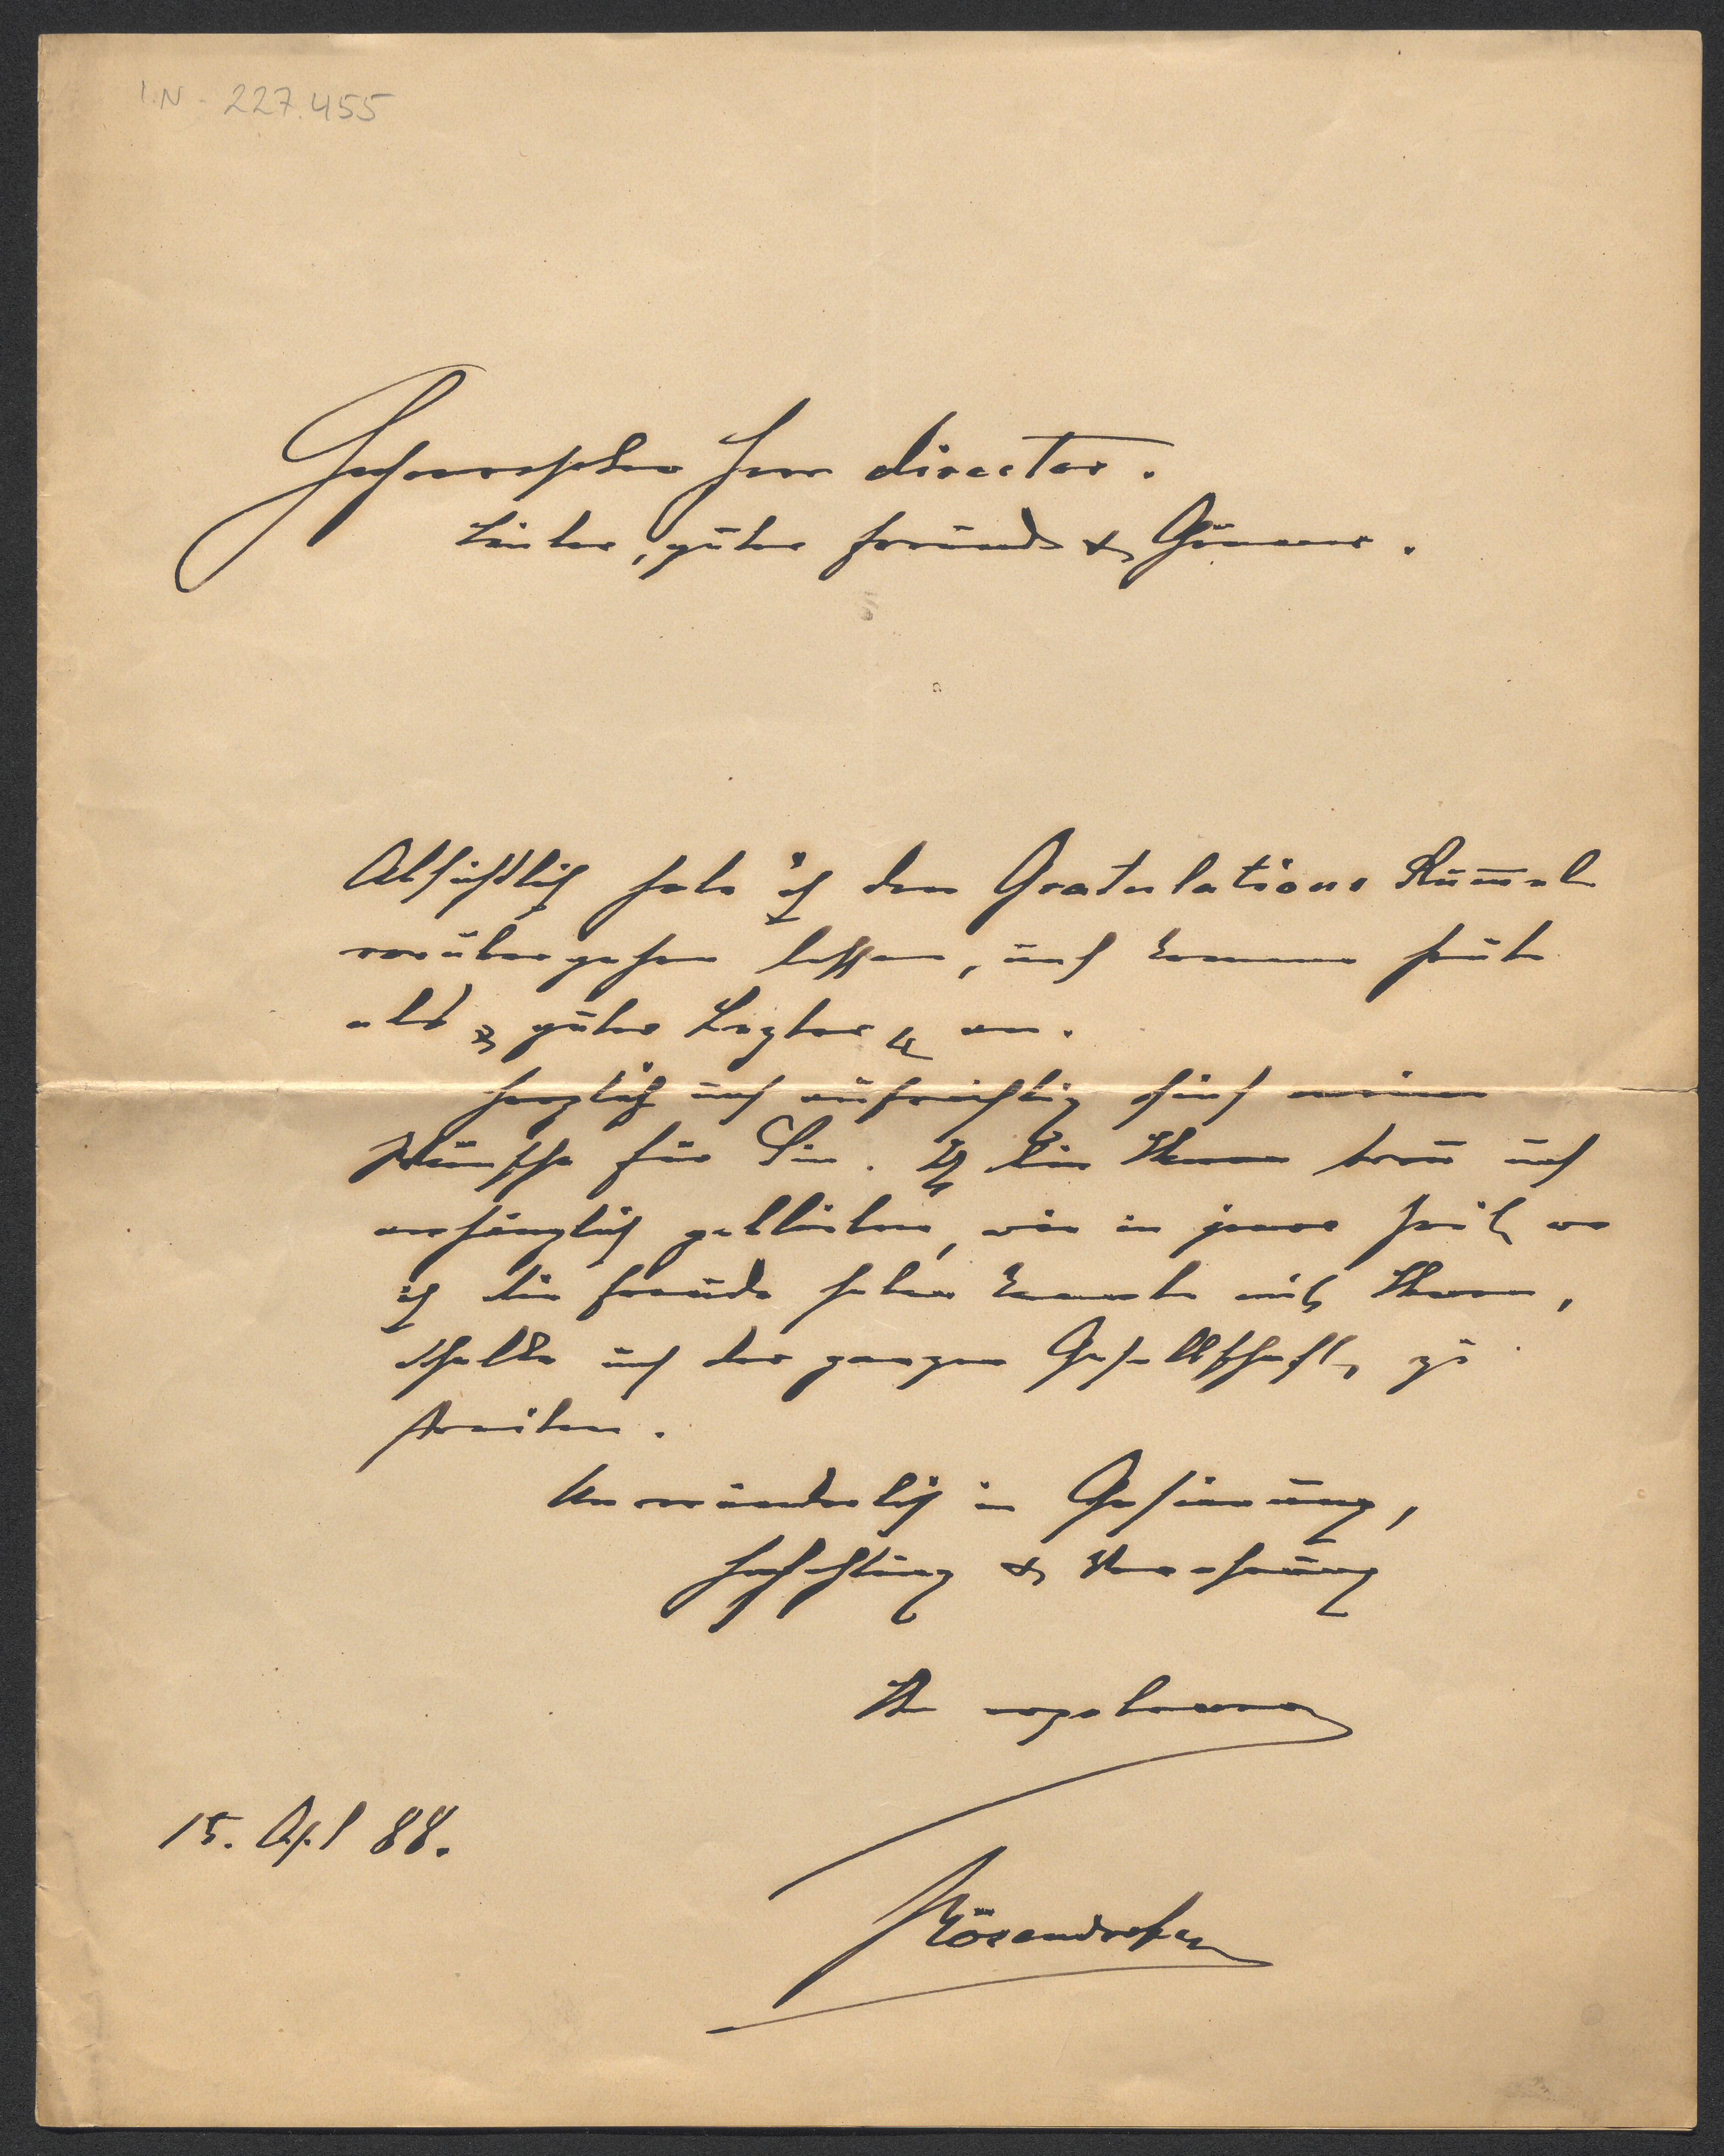 I.N. 227.455
Hochverehrter Herr director.
Lieber, guter Freund & Gönner.
Absichtlich habe ich den Gratulations Rummel
vorübergehen lassen, und komme heute
als „guter Letzter“ an.
Herzlich und aufrichtig sind meine
Wünsche für Sie. Ich bin Ihnen treu und
anhänglich geblieben, wie in jener Zeit, wo
ich die Freude haben konnte mit Ihnen,
und der ganzen Gesellschaft, zu
streiten.
Unveränderlich in Gesinnung,
Hochachtung & Verehrung
Ihr ergebener
15. Apl 88.
Bösendorfer